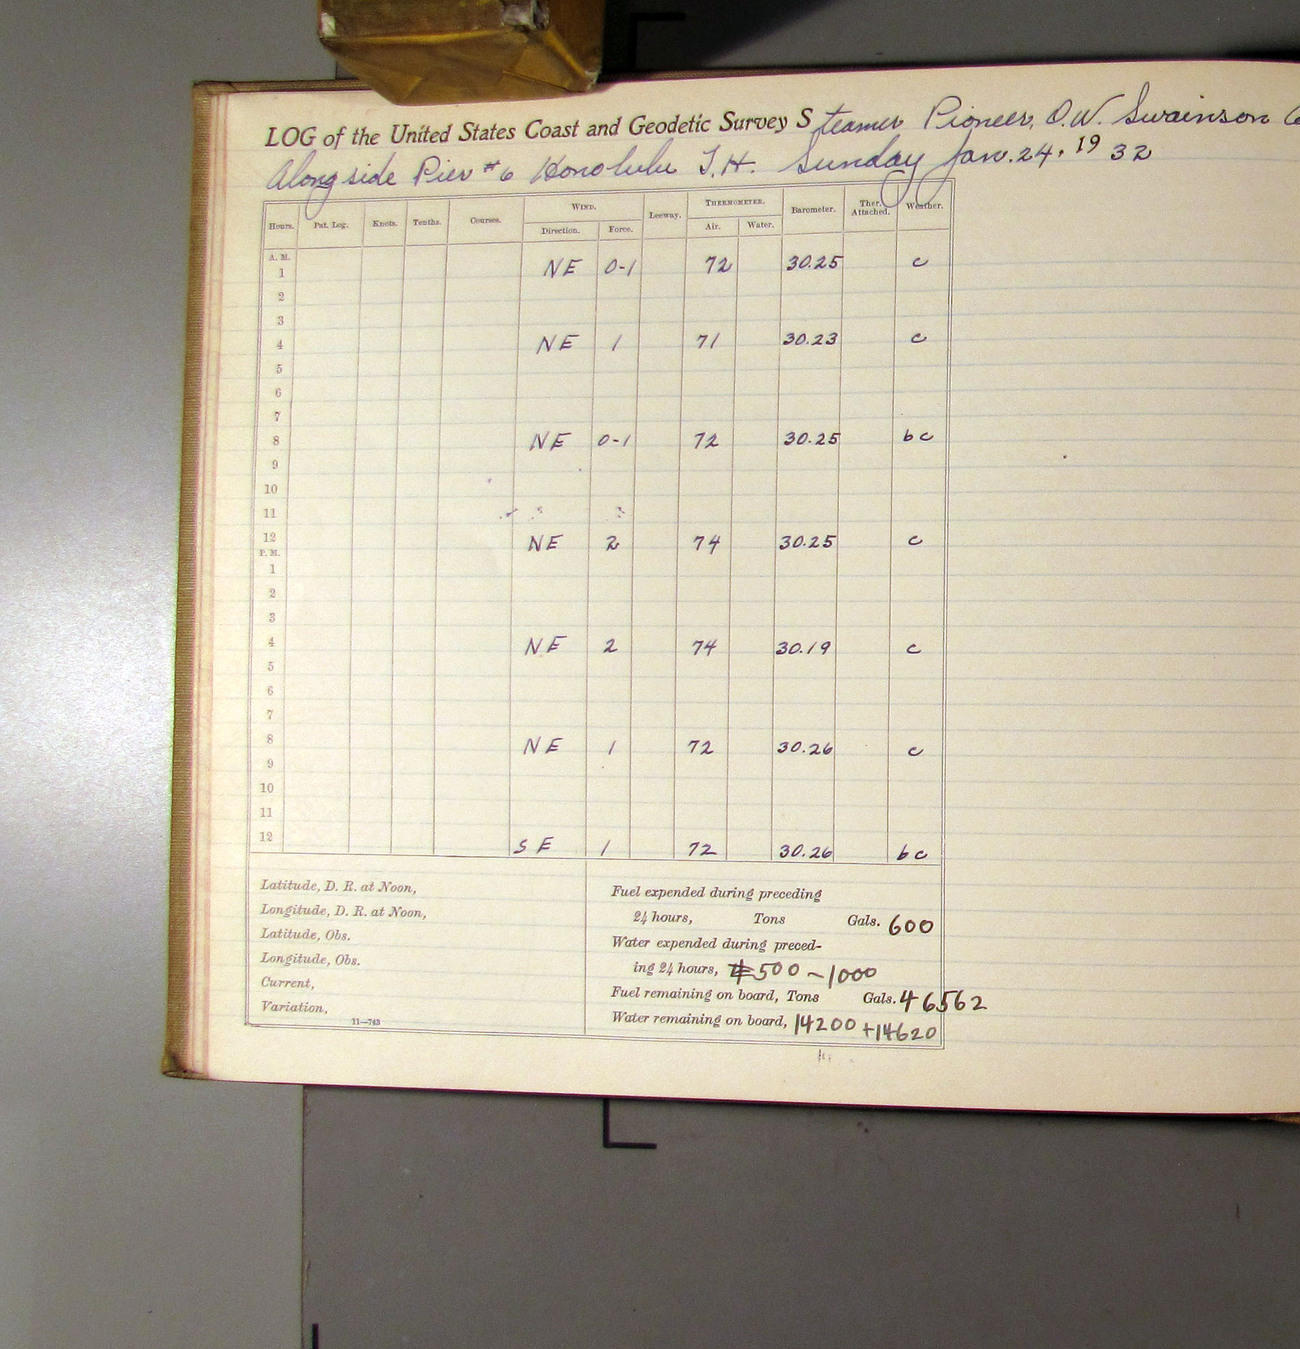 LOG of the United States Coast and Geodetic Survey Steamer Pioneer, O.W. Swainson
Alongside Pier #6 Honolulu T.H. Sunday Jan. 24, 1932
Hours. Pat. Log. Knots. Tenths. Courses. WIND. Leeway. THERMOMETER. Barometer. Ther. Attached. Weather.
Direction. Force. Air. Water.
A. M.
1 NE 0-1 72 30.25 c
2
3
4 NE 1 71 30.23 c
5
6
7
8 NE 0-1 72 30.25 bc
9
10
11
12 NE 2 74 30.25 c
P. M.
1
2
3
4 NE 2 74 30.19 c
5
6
7
8 NE 1 72 30.26 c
9
10
11
12 SE 1 72 30.26 bc
Latitude, D. R. at Noon,
Longitude, D. R. at Noon,
Latitude, Obs.
Longitude, Obs.
Current,
Variation,
11—743
Fuel expended during preceding
24 hours, Tons Gals. 600
Water expended during preced-
ing 24 hours, 500 ~ 1000
Fuel remaining on board, Tons Gals. 46562
Water remaining on board, 14200 + 14620